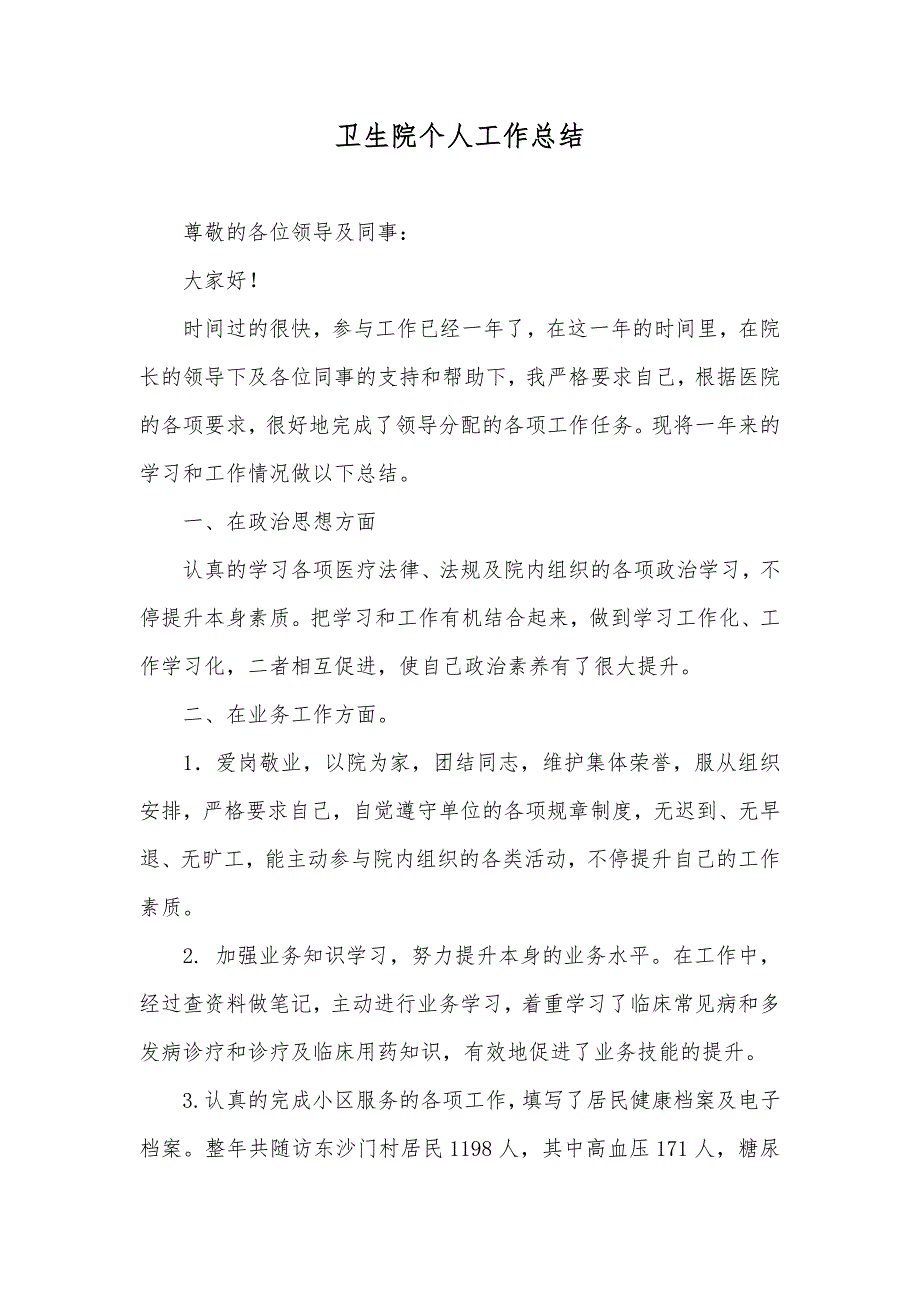 卫生院个人工作总结
尊敬的各位领导及同事：
大家好！
时间过的很快，参与工作已经一年了，在这一年的时间里，在院
长的领导下及各位同事的支持和帮助下，我严格要求自己，根据医院
的各项要求，很好地完成了领导分配的各项工作任务。现将一年来的
学习和工作情况做以下总结。
一、在政治思想方面
认真的学习各项医疗法律、法规及院内组织的各项政治学习，不
停提升本身素质。把学习和工作有机结合起来，做到学习工作化、工
作学习化，二者相互促进，使自己政治素养有了很大提升。
二、在业务工作方面。
1．爱岗敬业，以院为家，团结同志，维护集体荣誉，服从组织
安排，严格要求自己，自觉遵守单位的各项规章制度，无迟到、无早
退、无旷工，能主动参与院内组织的各类活动，不停提升自己的工作
素质。
2. 加强业务知识学习，努力提升本身的业务水平。在工作中，
经过查资料做笔记，主动进行业务学习，着重学习了临床常见病和多
发病诊疗和诊疗及临床用药知识，有效地促进了业务技能的提升。
3.认真的完成小区服务的各项工作，填写了居民健康档案及电子
档案。整年共随访东沙门村居民 1198 人，其中高血压 171 人，糖尿